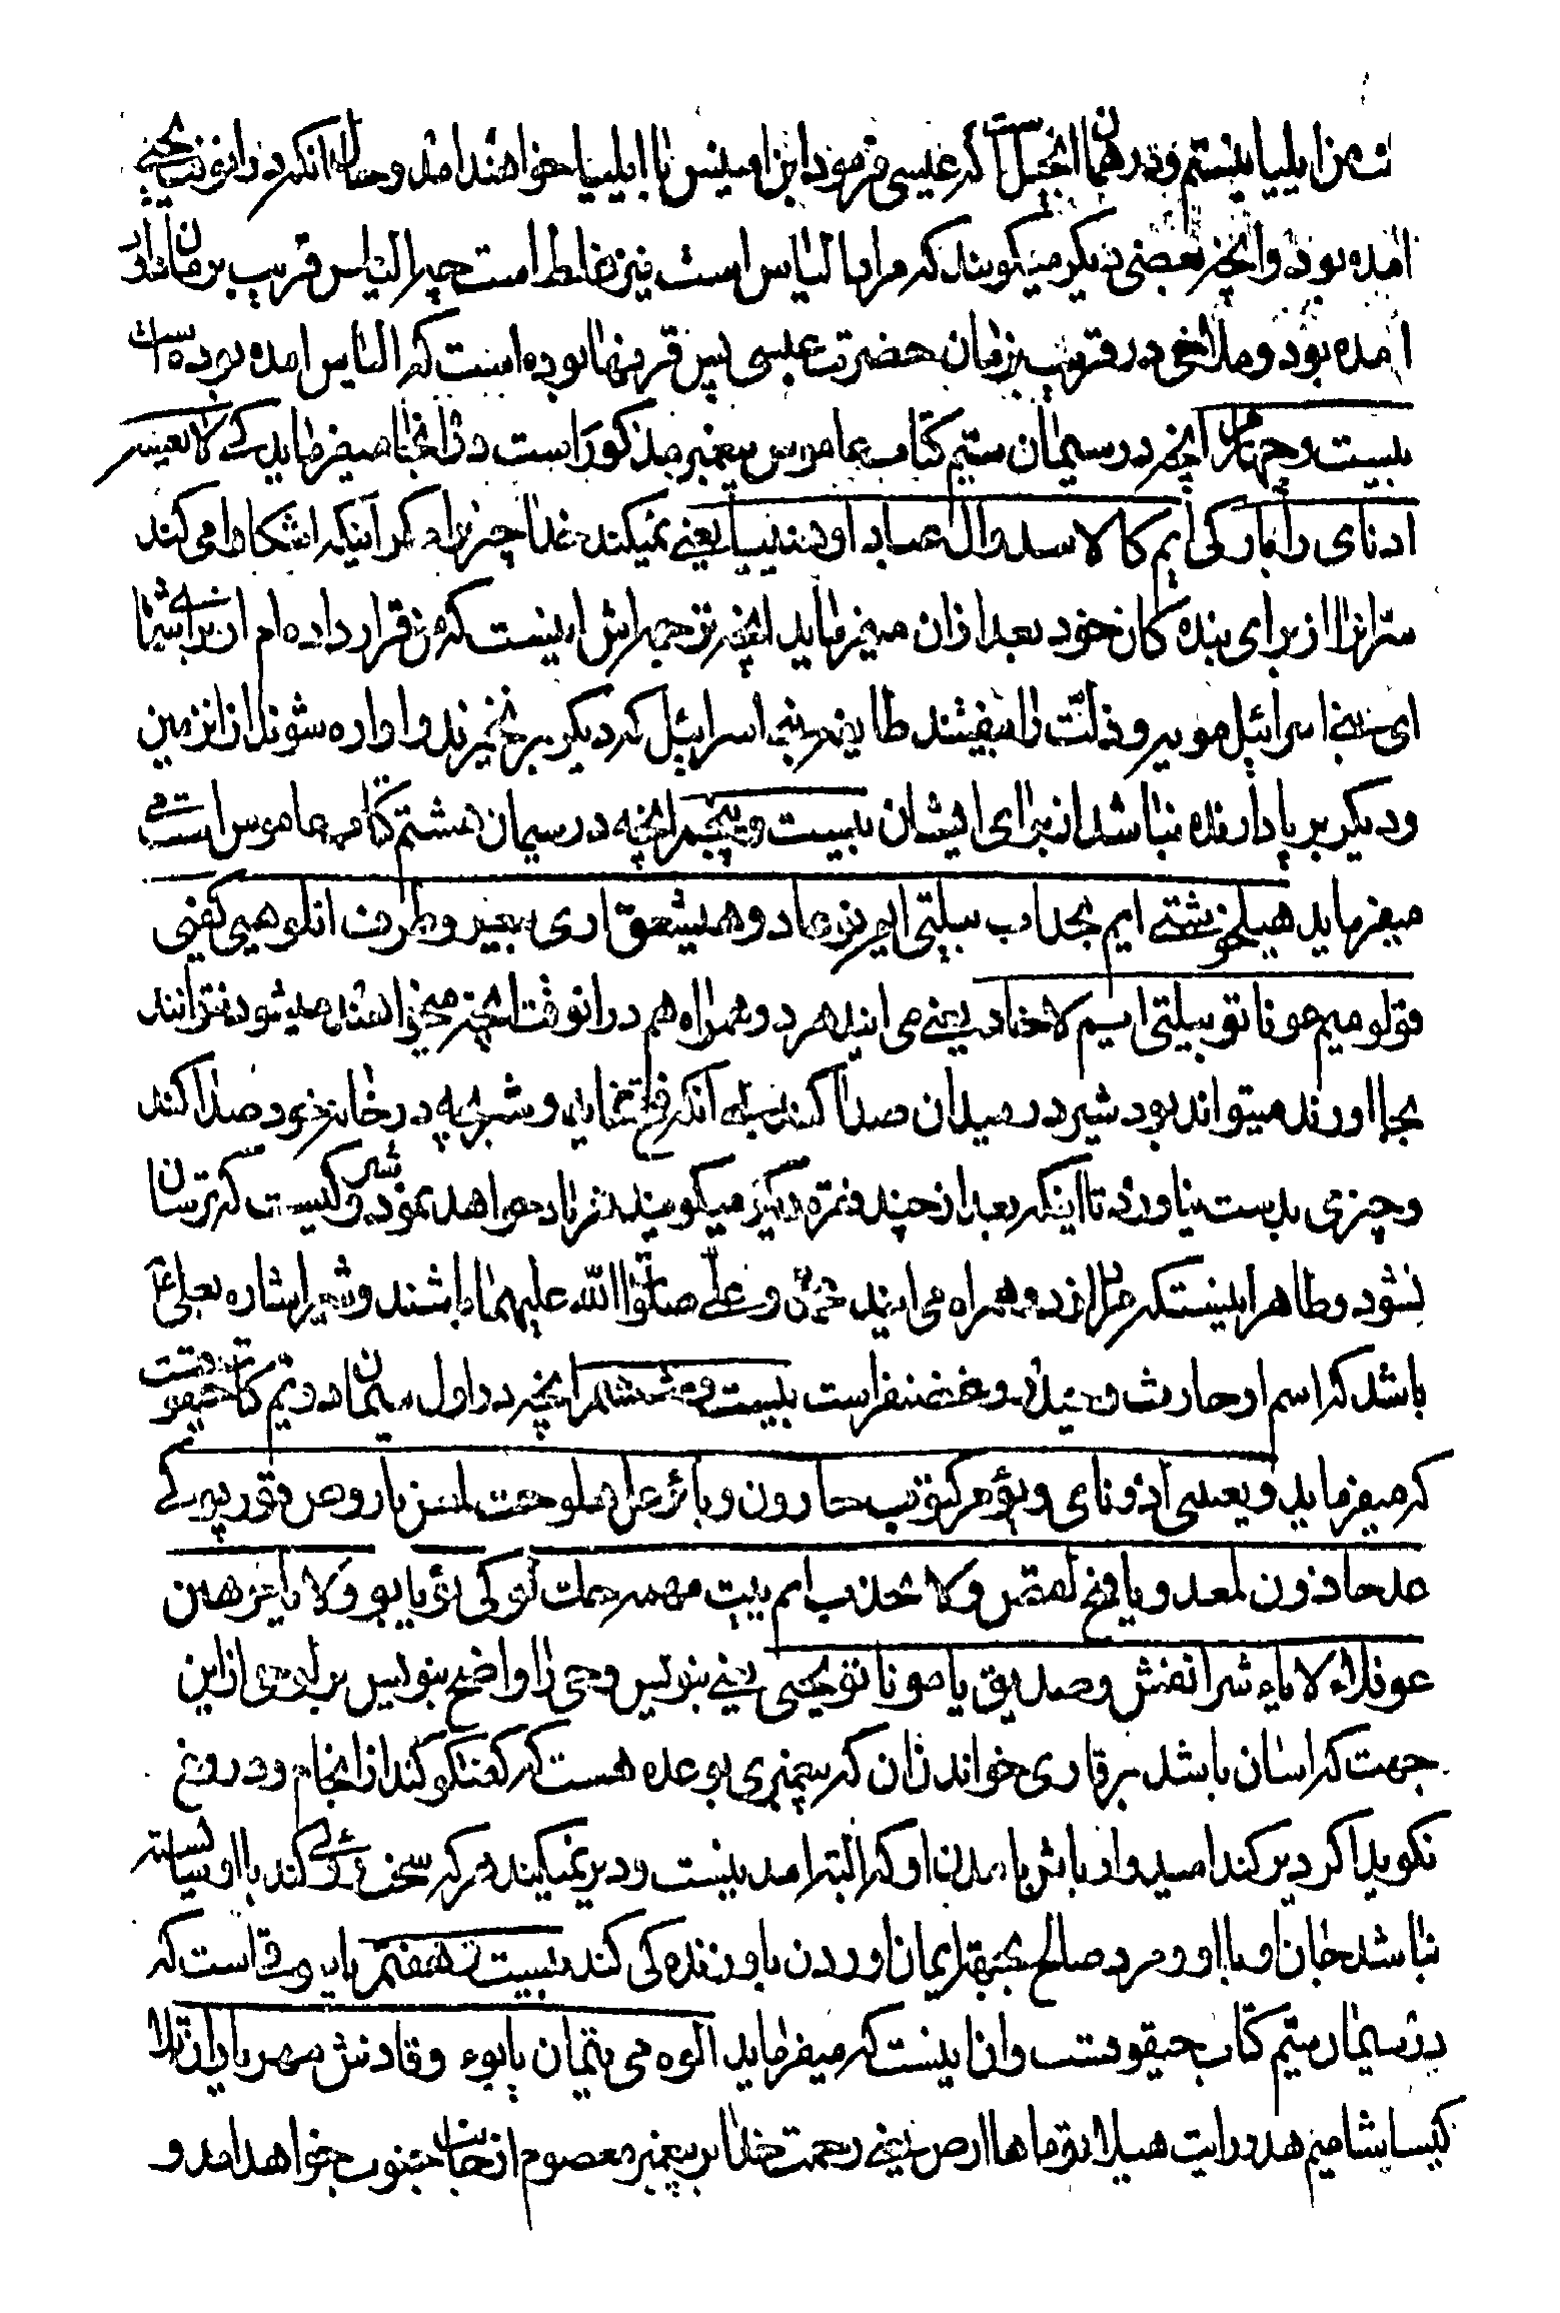 که من ایلیا نیستم و در همان انجیل است که عیسی فرمود بعد از این پس با ایلیا خواهند آمد و حال آنکه در آنوقت یحیی
آمده بود و آنچه بعضی دیگر میکویند که مراد الیاس است نیز غلط است چرا الیاس قریب بزمان
آمده بود و ملاخی در قریب بزمان حضرت عیسی پس قرنها بوده است که الیاس آمده بوده است
بیست و چهارم آنچه در سیمان سیم کتاب عاموس پیغمبر مذکور است در آنجا میفرماید کی لا یعیسه
ادنای دابار کی ایم کالا سدو ال عباداو هنبییا یعنی نمیکند خدا چیزیرا مکر آنیکه آشکارا می کند
سر آنرا از برای بنده کان خود بعد از آن میفرماید آنچه ترجمه اش اینست که من قرار داده ام از برای شما
ای بنی اسرائیل مویه و ذلت را بیفتند طایفه بنی اسرائیل که دیکر بر نخیزند و آواره شوند از زمین
و دیکر بر پا دارنده نباشد از برای ایشان بیست و پنجم آنچه در سیمان هشتم کتاب عاموس است
میفرماید هیلخو شنی ایم یحداب بیلتی ایم نوعاد و هیشعق اری بیعیر و طرف انلو هیی کفیی
قولو میم عوناتو بیلتی ایم لاخاد یعنی می آیند هر دو همراه هم در آنوقت آنچه میخواستند میشود نتوانند
بجا آورند میتواند بود شیر در میدان صدا کند بی آنکه فتح نماید و شیر بچه در خانه خود صدا کند
و چیزی بدست نیاورد تا اینکه بعد از چند فقره دیکر میکویند شیر فریاد خواهد نمود و کیست که ترسان
نشود و ظاهر اینست که مراد از دو همراه می آیند محمد و علی صلوة الله علیهما باشند و شیر اشاره بعلی ع
باشد که اسم او حارث و حیدر و غضنفر است بیست و ششم آنچه در اول سیمان دویم کتاب حیقوقست
که میفرماید و یعیسی ادونای ویؤمر کتوب حازون و بائر عل هلوحت لمعن یاروص قوریه کی
عد حازون لمعد و یافح لقص ولا یخذب ایم ییت مهمه حک لو کی بؤ یابو ولا یاخر هین
عونلاء لا یاء شرا نفش وصدیق یامونا تو یحیی یعنی بنویس وحی را واضح بنویس بر لوحی از این
جهت که آسان باشد بر قاری خواندن آن که پیغمبری بوعده هست که کفتکو کند از انجام و دروغ
نکوید اکر دیر کند امیدوار باش بآمدن او که البته آمدنیست و دیر نمیکند هر که سخن کند با او شایسته
نباشد جان او با او و مرد صالح بجهة ایمان آوردن باو زنده کی کند بیست و هفتم یاب وقا است که
در سیمان سیم کتاب حیقوقست و آن اینست که میفرماید الوه می تیمان یابوء وقادش مهر پاران سلا
کیسا شامیم هودو وایت هیلا توما هاارص یعنی رحمت خدا بر پیغمبر معصوم از جانب جنوب خواهد آمد و